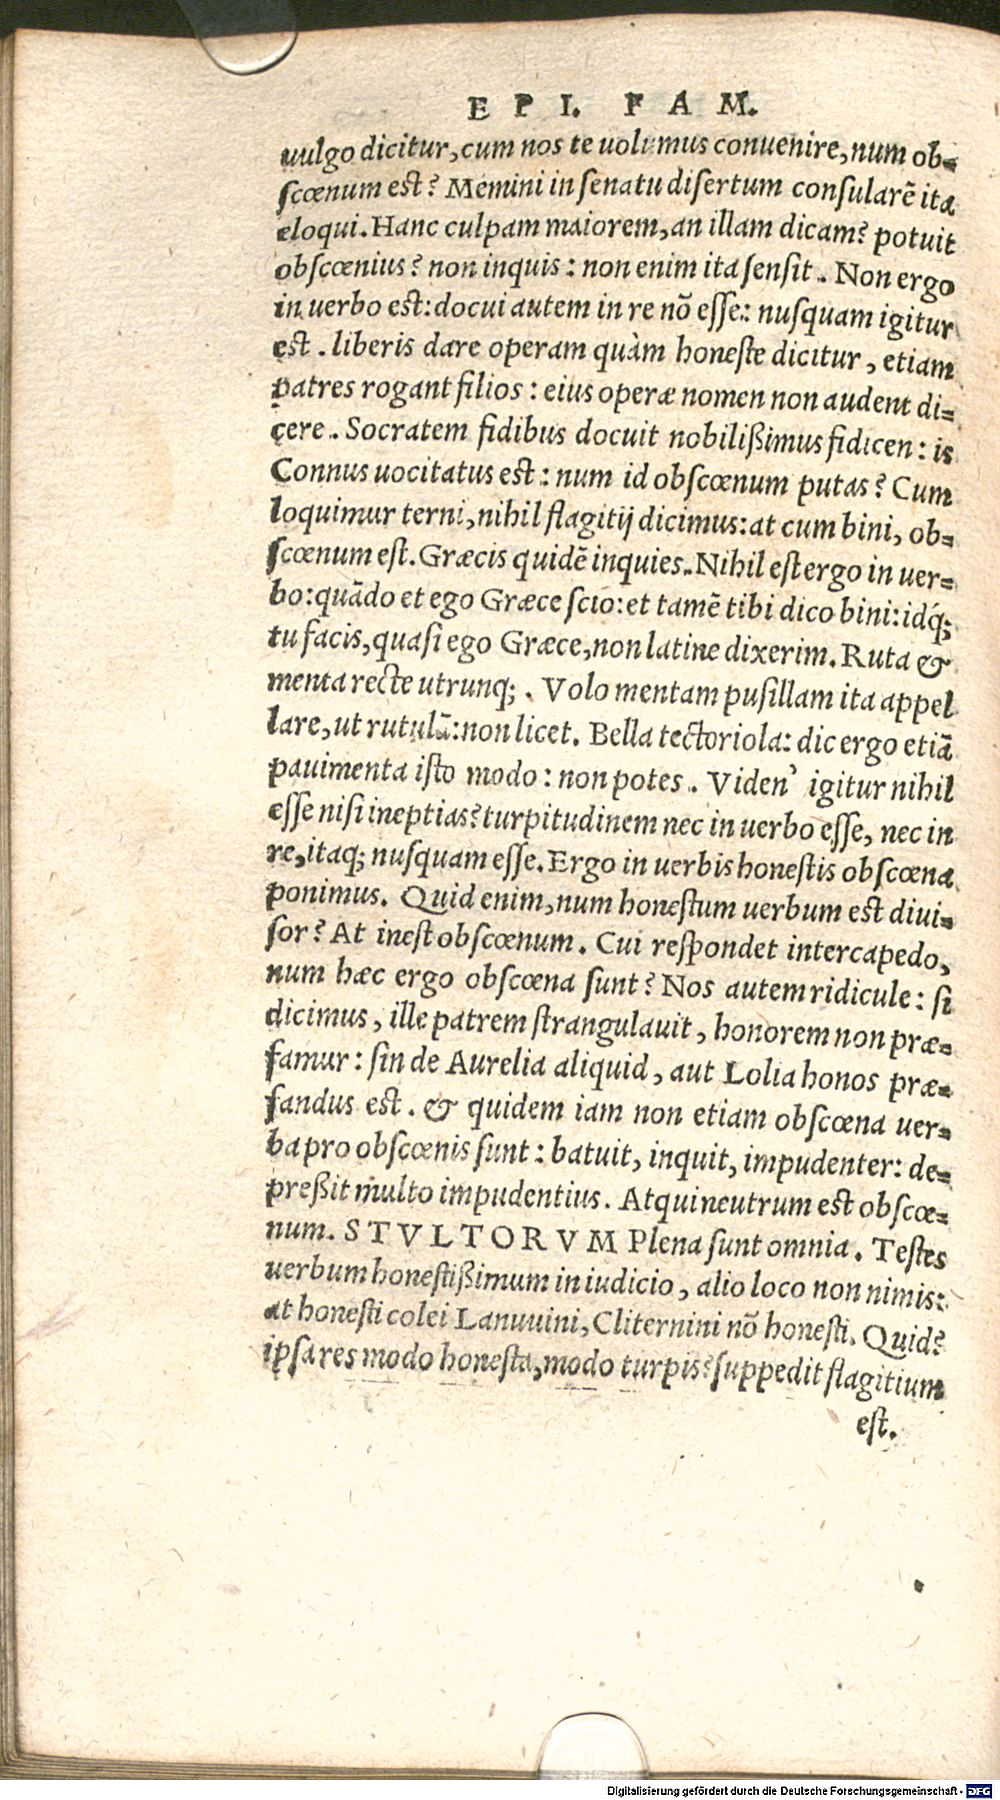 E P I. F A M.
uulgo dicitur, cum nos te uolumus conuenire, num ob=
scœnum est? Memini in senatu disertum consularẽ ita
eloqui. Hanc culpam maiorem, an illam dicam? potuit
obscœnius? non inquis: non enim ita sensit. Non ergo
in uerbo est: docui autem in re nõ esse: nusquam igitur
est. liberis dare operam quàm honeste dicitur, etiam
patres rogant filios: eius operæ nomen non audent di=
cere. Socratem fidibus docuit nobilißimus fidicen: is
Connus uocitatus est: num id obscœnum putas? Cum
loquimur terni, nihil flagitij dicimus: at cum bini, ob=
scœnum est. Græcis quidẽ inquies. Nihil est ergo in uer=
bo: quãdo et ego Græce scio: et tamẽ tibi dico bini: idq́;
tu facis, quasi ego Græce, non latine dixerim. Ruta &
menta recte utrunq;. Volo mentam pusillam ita appel
lare, ut rutulã: non licet. Bella tectoriola: dic ergo etiã
pauimenta isto modo: non potes. Viden' igitur nihil
esse nisi ineptias? turpitudinem nec in uerbo esse, nec in
re, itaq; nusquam esse. Ergo in uerbis honestis obscœna
ponimus. Quid enim, num honestum uerbum est diui=
sor? At inest obscœnum. Cui respondet intercapedo,
num hæc ergo obscœna sunt? Nos autem ridicule: si
dicimus, ille patrem strangulauit, honorem non præ=
famur: sin de Aurelia aliquid, aut Lolia honos præ=
fandus est. & quidem iam non etiam obscœna uer=
ba pro obscœnis sunt: batuit, inquit, impudenter: de=
preßit multo impudentius. Atqui neutrum est obscœ=
num. S T V L T O R V M Plena sunt omnia. Testes
uerbum honestißimum in iudicio, alio loco non nimis:
at honesti colei Lanuuini, Cliternini nõ honesti. Quid?
ipsa res modo honesta, modo turpis? suppedit flagitium
est.
Digitalisierung gefördert durch die Deutsche Forschungsgemeinschaft - DFG